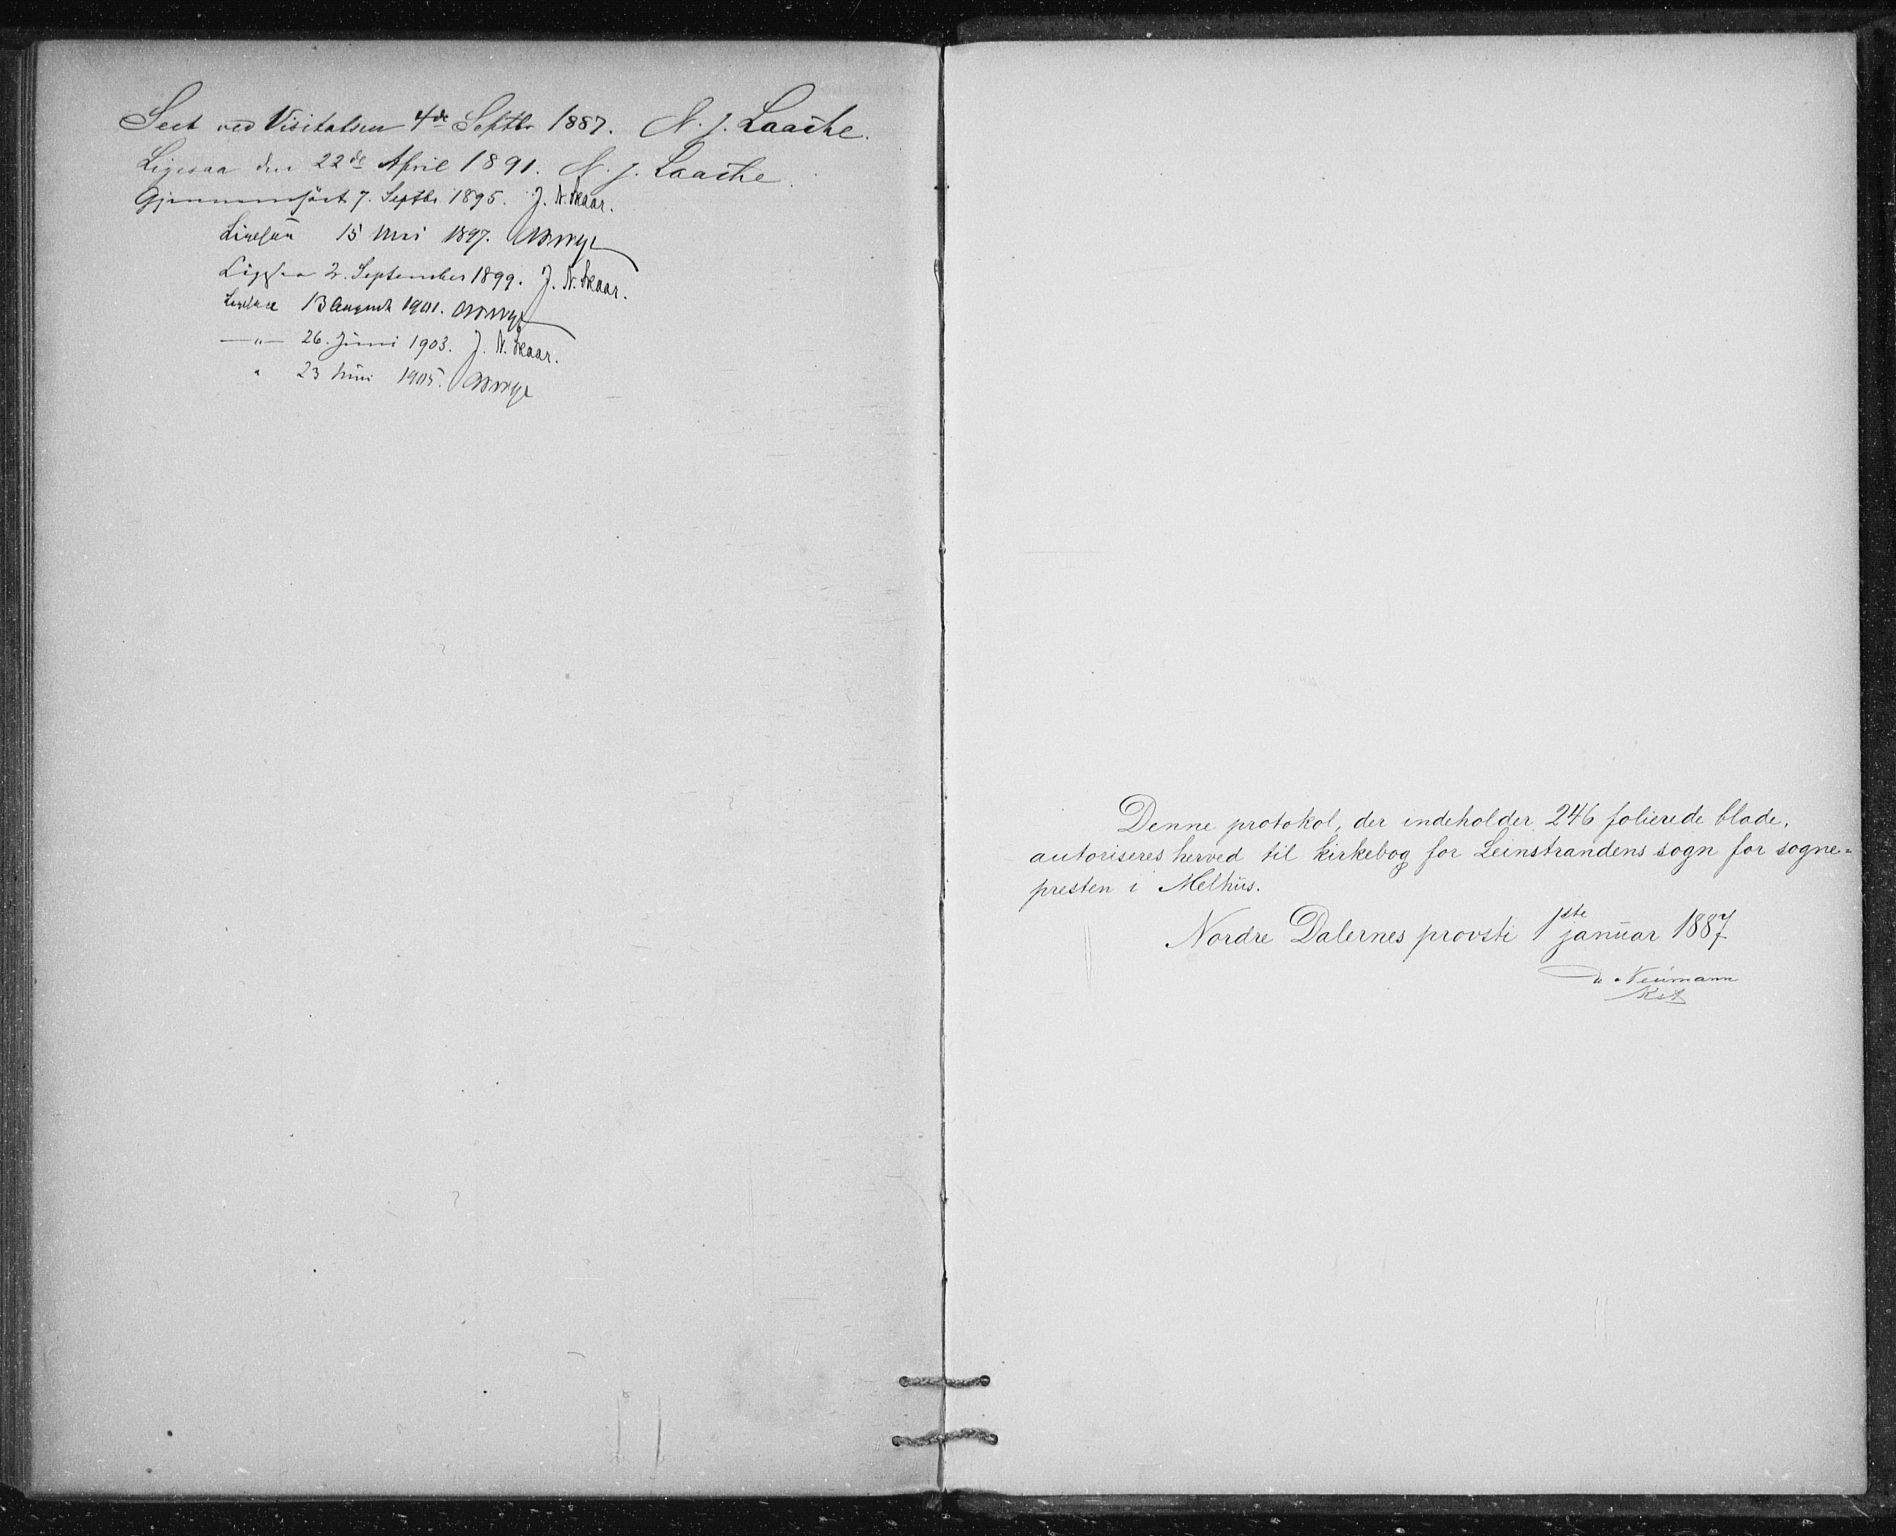 Seet ved Visitatsen 4de Septbr 1887. N. J. Laache.
Ligesaa den 22de April 1891. N. J. Laache.
Gjennemseet 7. Septbr 1895. J. N. Skaar.
Ligesaa 15 Mai 1897.
Ligesaa 2. September 1899. J. N. Skaar.
Ligesaa 13 August 1901.
—"— 26. Juni 1903. J. N. Skaar.
" 23 Juni 1905.
Denne protokol, der indeholder 246 folierede blade,
autoriseres herved til kirkebog for Leinstrandens sogn for sogne=
presten i Melhus.
Nordre Dalernes provsti 1ste januar 1887
Neumann
Kst